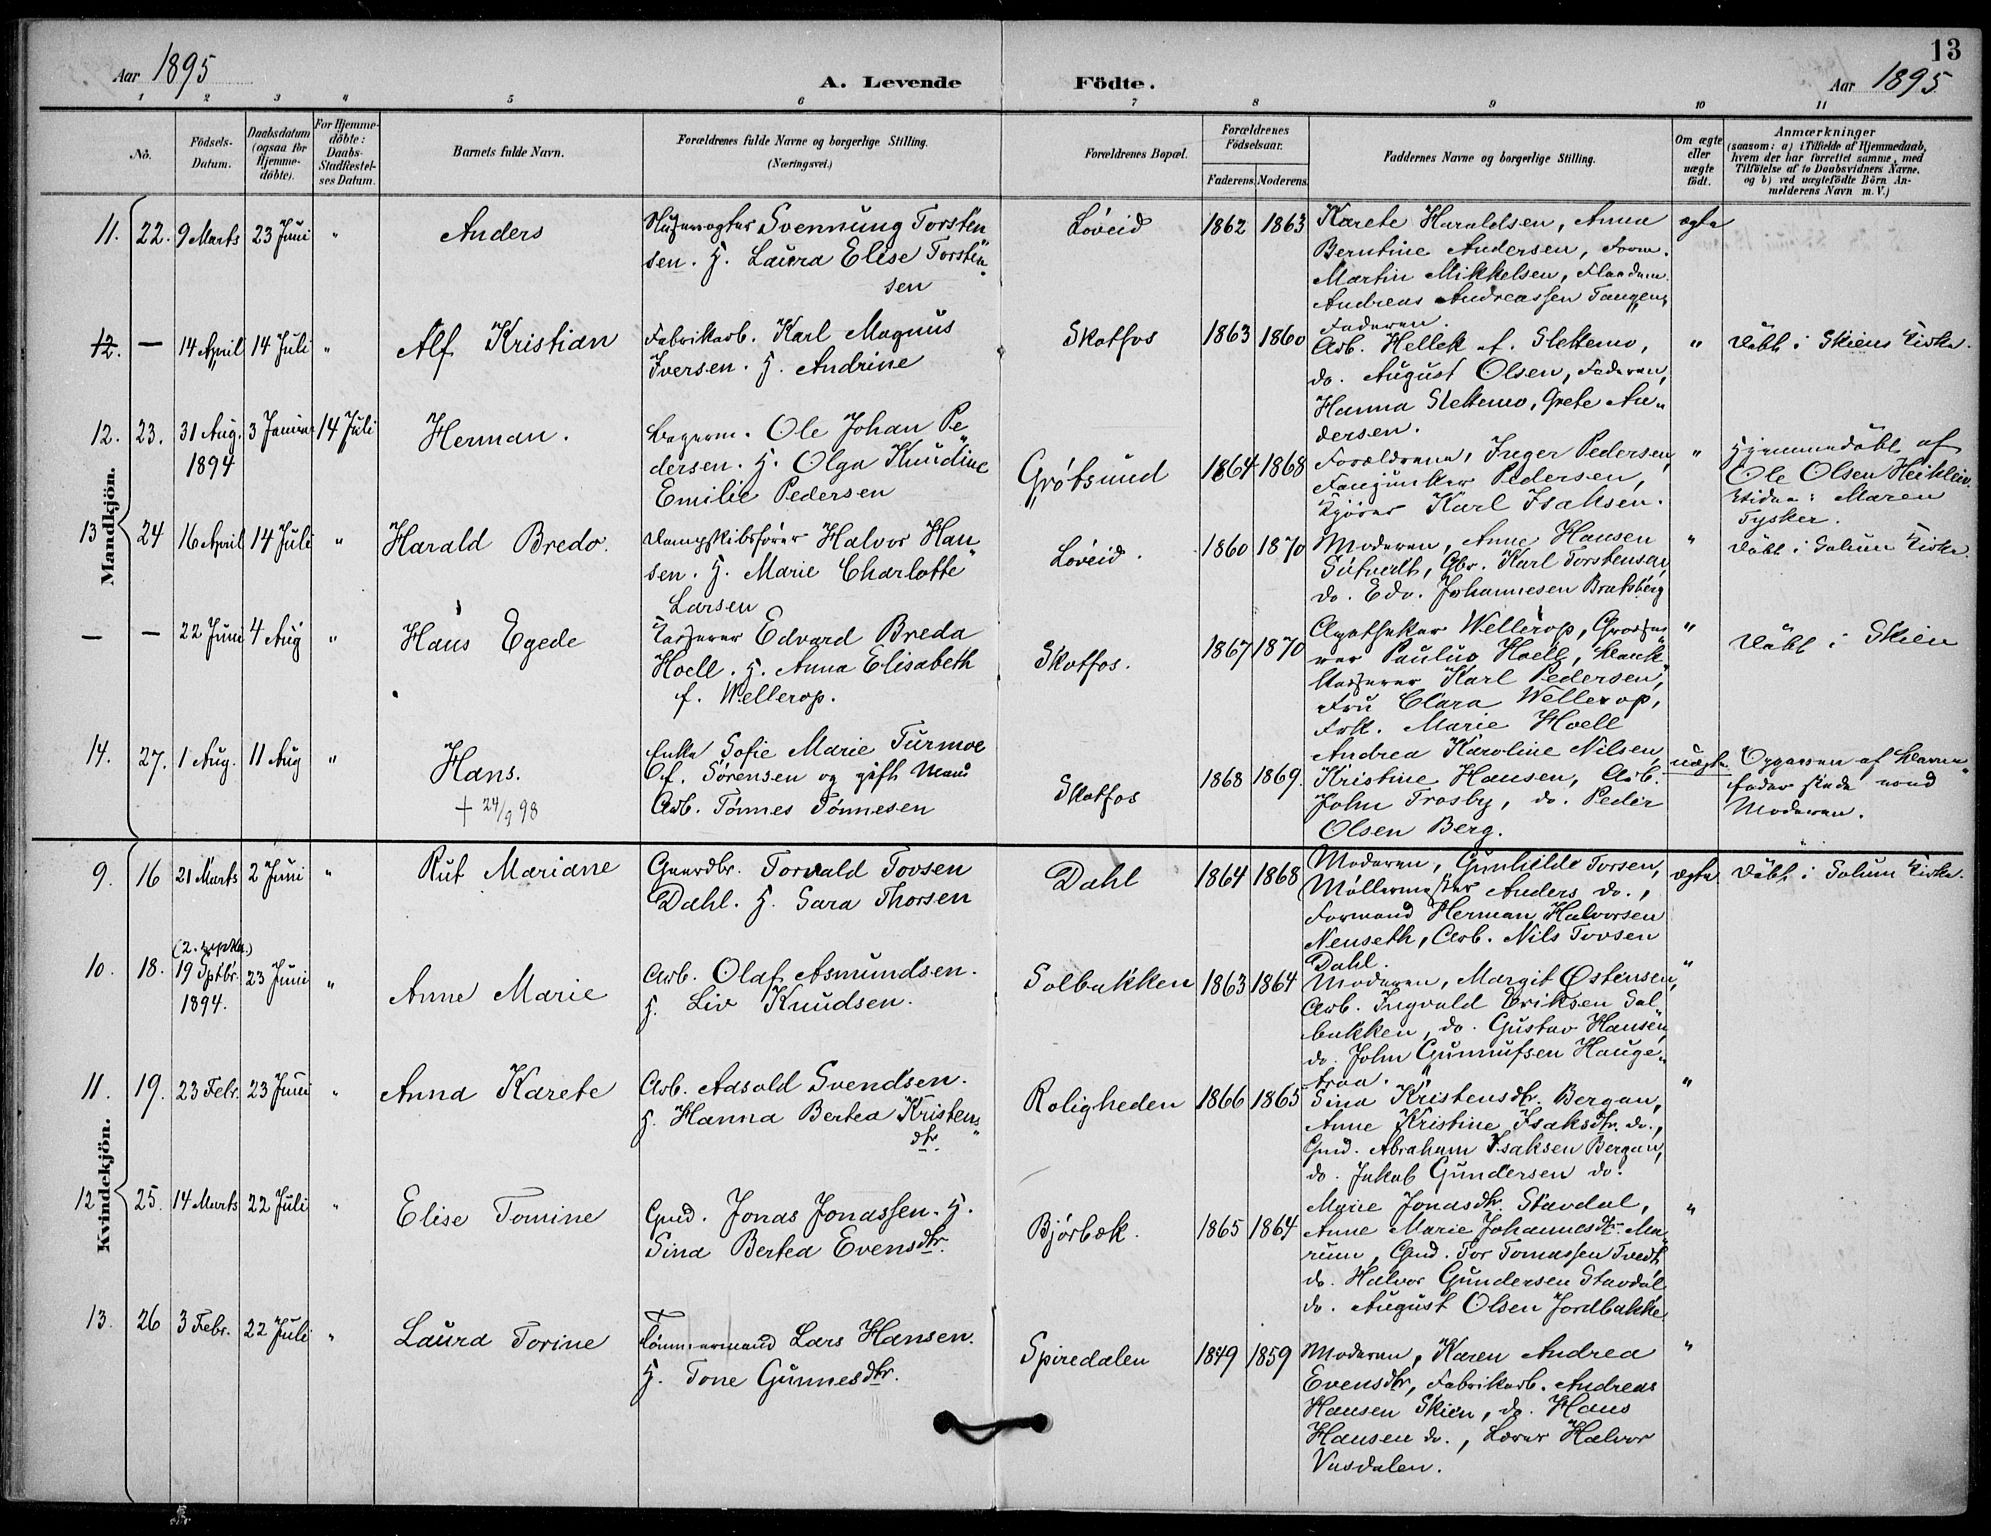 13
Aar 1895
A. Levende Födte.
Aar 1895
1 2 3 4 5 6 7 8 9 10 11
No.
Födsels-
Datum.
Daabsdatum
(ogsaa for
Hjemme-
döbte).
For Hjemme-
döbte:
Daabs-
Stadfæstel-
ses Datum.
Barnets fulde Navn.
Forældrenes fulde Navne og borgerlige Stilling.
(Næringsvei.)
Forældrenes Bopæl.
Forældrenes
Födselsaar.
Faderens. Moderens.
Faddernes Navne og borgerlige Stilling.
Om ægte
eller
uægte
födt.
Anmærkninger
(saasom: a) i Tilfælde af Hjemmedaab,
hvem der har forrettet samme, med
Tilföielse af to Daabsvidners Navne.
og b) ved uægtefödte Börn An-
melderens Navn m. V.)
Mandkjön.
11. 22. 9 Marts 23 Juni "
Anders
Svennung Torsten
sen. H. Laura Elise Torsten
sen
Løveid
1862 1863
Karete Haraldsen, Anna
Berntine Andersen, Form.
Martin Mikkelsen,
Andreas Andreassen Tangen,
Faderen.
ægte
12. — 14 April 14 Juli "
Alf Kristian
Fabrikarb. Karl Magnus
Iversen. H. Andrine
Skotfos
1863 1860
Arb. Hellek af. Slettemo,
do. August Olsen, Faderen,
Hanna Slettemo, Grete An„
dersen.
"
Døbt i Skiens Kirke.
12. 23. 31 Aug. 1894 3 Januar 14 Juli
Herman.
Bagerm. Ole Johan Pe„
dersen. H. Olga Knudine
Emilie Pedersen
Grótsund
1864 1868
Forældrene, Inger Pedersen,
Pedersen,
Karl Isaksen.
"
Hjemmedøbt af
Ole Olsen Heiklein.
Vidne: Maren
Tysker.
13 24 16 April 14 Juli "
Harald Bredo.
Dampskibsfører Halvor Han„
sen. H. Marie Charlotte
Larsen
Løveid.
1860 1870
Moderen, Anne Hansen
Gbr. Karl Torstensen,
do. Edv. Johannesen Bratsberg
"
Døbt i Solum Kirke.
— — 22 Juni 4 Aug "
Hans Egede
Kasserer Edvard Breda
Hoell. H. Anna Elisabeth
f. Wellerop.
Skotfos.
1867 1870
Apotheker Wellerop, Grosse
rer Paulus Hoell, Bank
kasserer Karl Pedersen,
Fru Clara Wellerop,
Frk. Marie Hoell
"
Døbt i Skien
14. 27. 1 Aug. 11 Aug "
Hans.
+ 24/9 98
Enke Sofie Marie Turmoe
f. Sørensen og gift Mand
Arb. Tønnes Tønnesen
Skotfos
1868 1869.
Andrea Karoline Nilsen,
Kristine Hansen, Arb.
John Trosby, do. Peder
Olsen Berg.
uægte
Opgaven af Barne„
fader skede ved
Moderen.
Kvindekjön.
9. 16 21 Marts 2 Juni "
Rut Mariane
Gaardbr. Torvald Tovsen
Dahl. H. Sara Thorsen
Dahl
1864 1868
Moderen, Gunhilde Torsen,
Møllermester Anders do.,
Formand Herman Halvorsen
Nenseth, Arb. Nils Tovsen
Dahl.
ægte
Døbt i Solum Kirke.
10. 18. 19 Sptbr. 1894. 23 Juni "
Anne Marie
Arb. Olaf Asmundsen.
H. Liv Knudsen.
Solbakken
1863 1864
Moderen, Margit Østensen,
Arb. Ingvald Eriksen Sol
bakken, do. Gustav Hansen,
do. John Gunnufsen Hauge„
traa.
"
11. 19. 23 Febr. 23 Juni "
Anna Karete
Arb. Aasold Svendsen.
H. Hanna Bertea Kristens„
dtr.
Roligheden
1866 1865
Sina Kristensdtr. Bergan,
Anne Kristine Isaksdtr. do.,
Gmd. Abraham Isaksen Bergan,
do. Jakob Gundersen do.
"
12 25. 14 Marts 22 Juli "
Elise Tomine
Gmd. Jonas Jonassen. H.
Sina Bertea Evensdtr.
Bjørbæk.
1865 1864
Marie Jonasdtr. Stavdal,
Anne Marie Johannesdtr. Ma„
rum, Gmd. Tor Tomassen Tvedt,
do. Halvor Gundersen Stavdal
do. August Olsen Jordbakke
"
13. 26 3 Febr. 22 Juli "
Laura Torine
Tømmermand Lars Hansen.
H. Tone Gunnesdtr.
Spiredalen
1849 1859
Moderen, Karen Andrea
Evensdtr, Fabrikarb. Andreas
Hansen Skien, do. Hans
Hansen do., Lærer Halvor
Vasdalen.
"